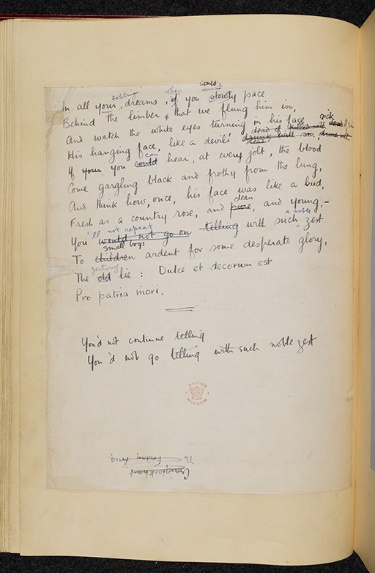 In all your dreams, if you slowly pace
Behind the limber that we flung him in,
And watch the white eyes turning in his face
His hanging face, like a devil's sick
If you could hear, at every jolt, the blood
Come gargling black and frothy from the lung,
And think how, once, his face was like a bud,
Fresh as a country rose, and pure, and young, -
You'll not repeat would not go on telling with such noble zest
To children small boys ardent for some desperate glory,
The old lie : Dulce et decorum est
Pro patria mori.
You'd not continue telling
You'd not go telling with such noble zest
Craiglockhart